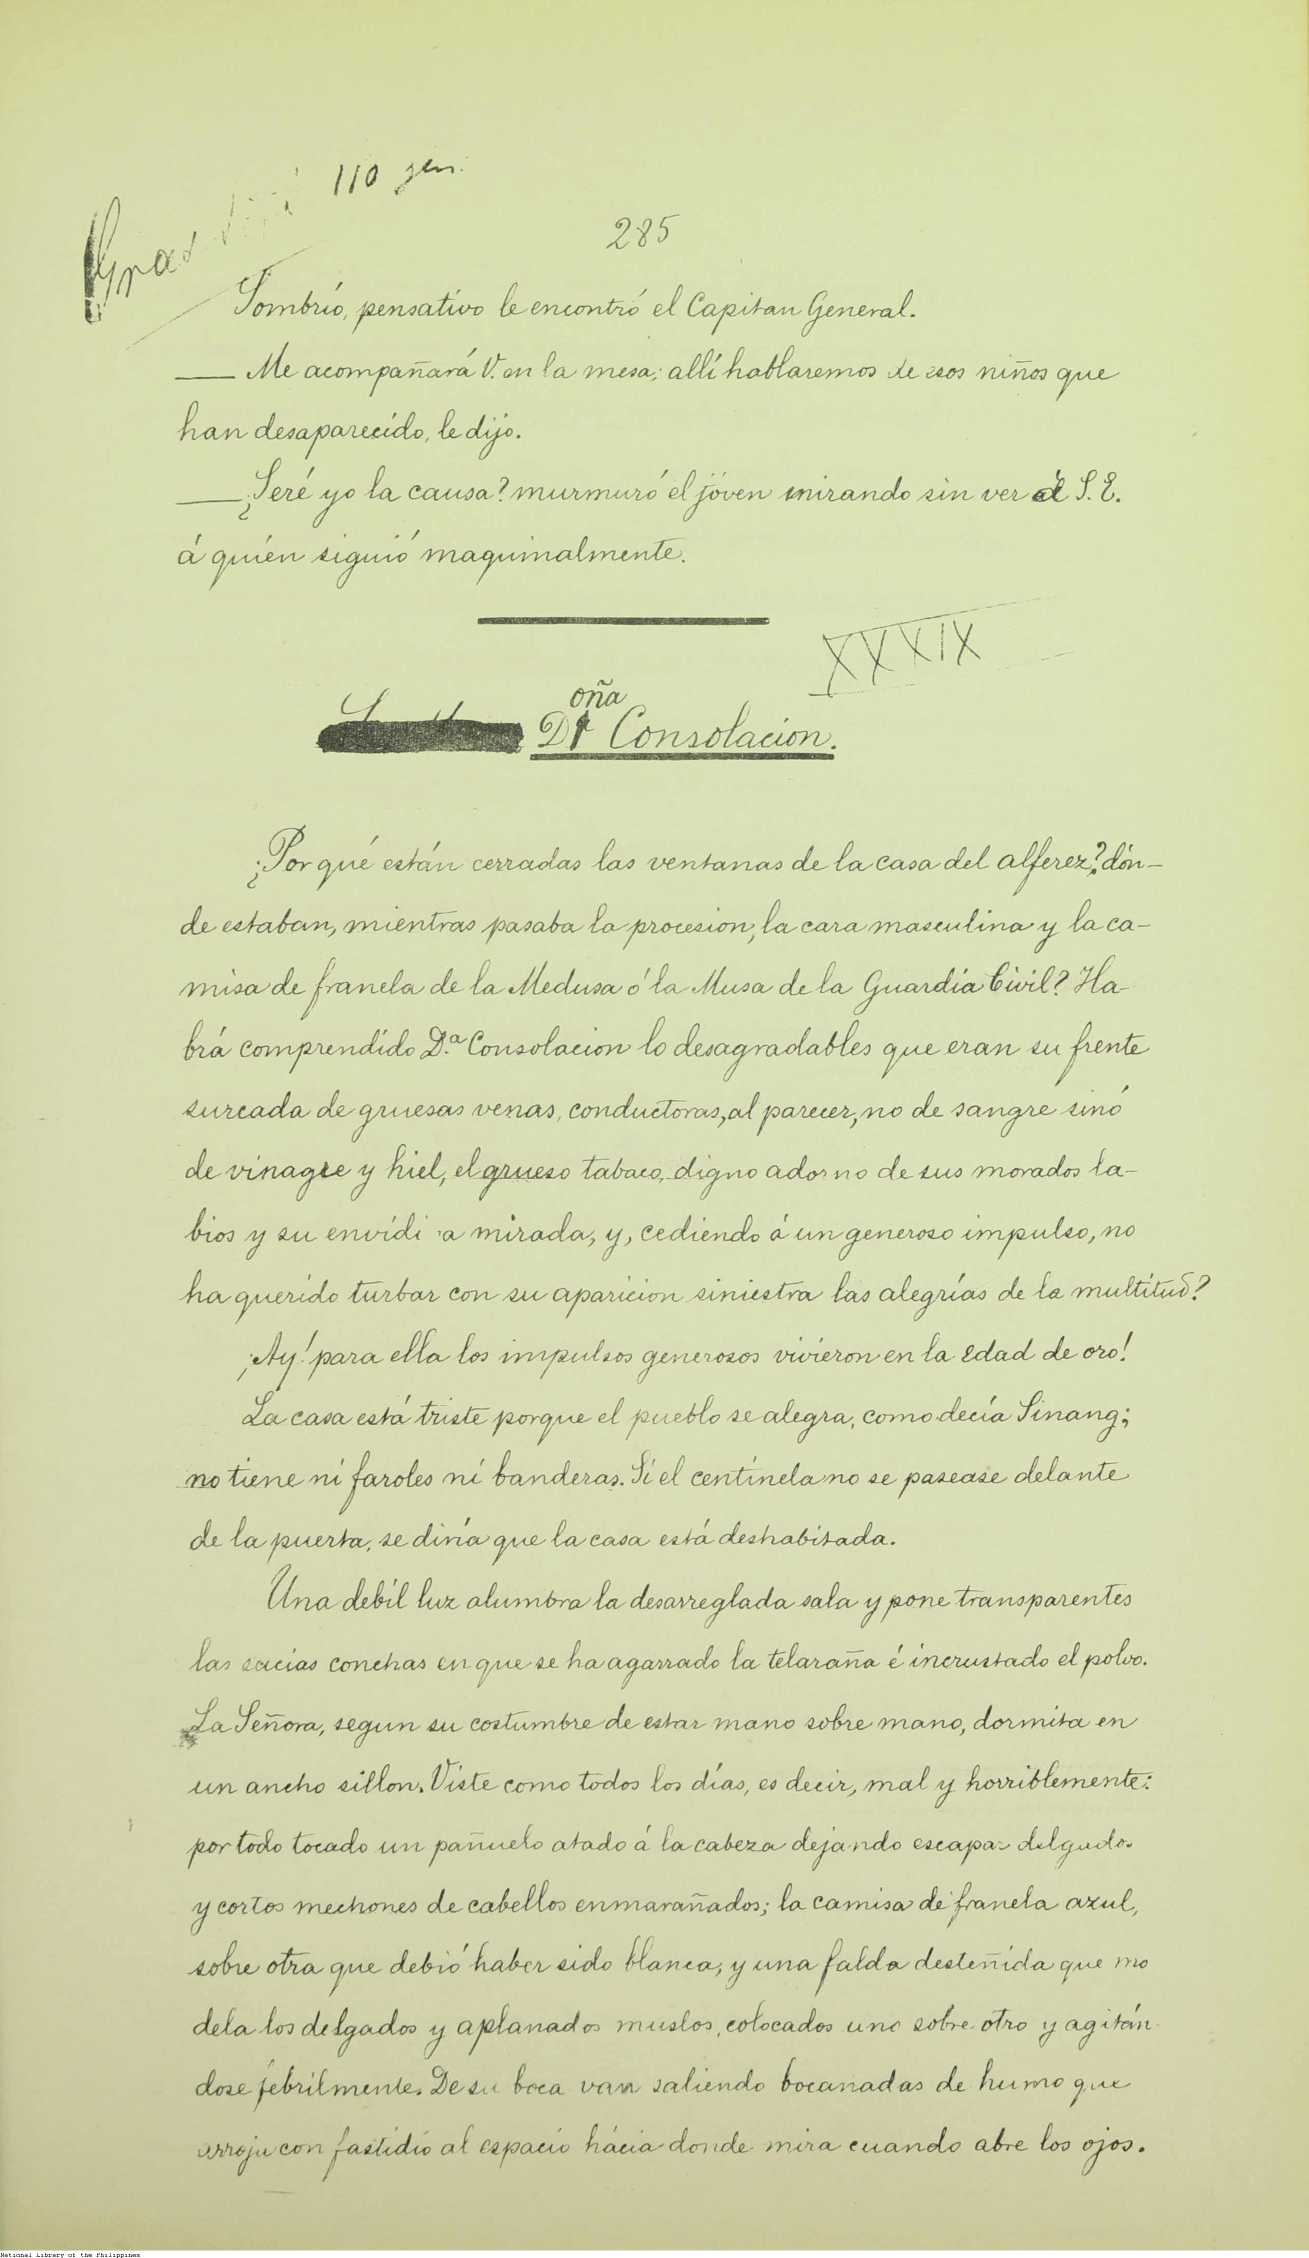 110 gen.
285
Sombrío, pensativo le encontró el Capitan General.
— Me acompañará V. en la mesa; allí hablaremos de esos niños que
han desaparecido, le dijo.
— ¿Seré yo la causa? murmuró el jóven mirando sin ver á S. E.
á quien siguió maquinalmente.
XXXIX
oña
D Consolacion.
¿Por qué están cerradas las ventanas de la casa del alferez? dón-
de estaban, mientras pasaba la procesion, la cara masculina y la ca-
misa de franela de la Medusa ó la Musa de la Guardia Civil? Ha-
brá comprendido D.ª Consolacion lo desagradables que eran su frente
surcada de gruesas venas, conductoras, al parecer, no de sangre sinó
de vinagre y hiel, el grueso tabaco, digno adorno de sus morados la-
bios y su envidi a mirada, y, cediendo á un generoso impulso, no
ha querido turbar con su aparicion siniestra las alegrías de la multitud?
¡Ay! para ella los impulsos generosos vivieron en la Edad de oro!
La casa está triste porque el pueblo se alegra, como decía Sinang;
no tiene ni faroles ni banderas. Si el centinela no se pasease delante
de la puerta, se diría que la casa está deshabitada.
Una debil luz alumbra la desarreglada sala y pone transparentes
las sucias conchas en que se ha agarrado la telaraña é incrustado el polvo.
La Señora, segun su costumbre de estar mano sobre mano, dormita en
un ancho sillon. Viste como todos los días, es decir, mal y horriblemente:
por todo tocado un pañuelo atado á la cabeza dejando escapar delgados
y cortos mechones de cabellos enmarañados; la camisa de franela azul,
sobre otra que debió haber sido blanca, y una falda desteñida que mo
dela los delgados y aplanados muslos, colocados uno sobre otro y agitán
dose febrilmente. De su boca van saliendo bocanadas de humo que
arroja con fastidio al espacio hácia donde mira cuando abre los ojos.
National Library of the Philippines